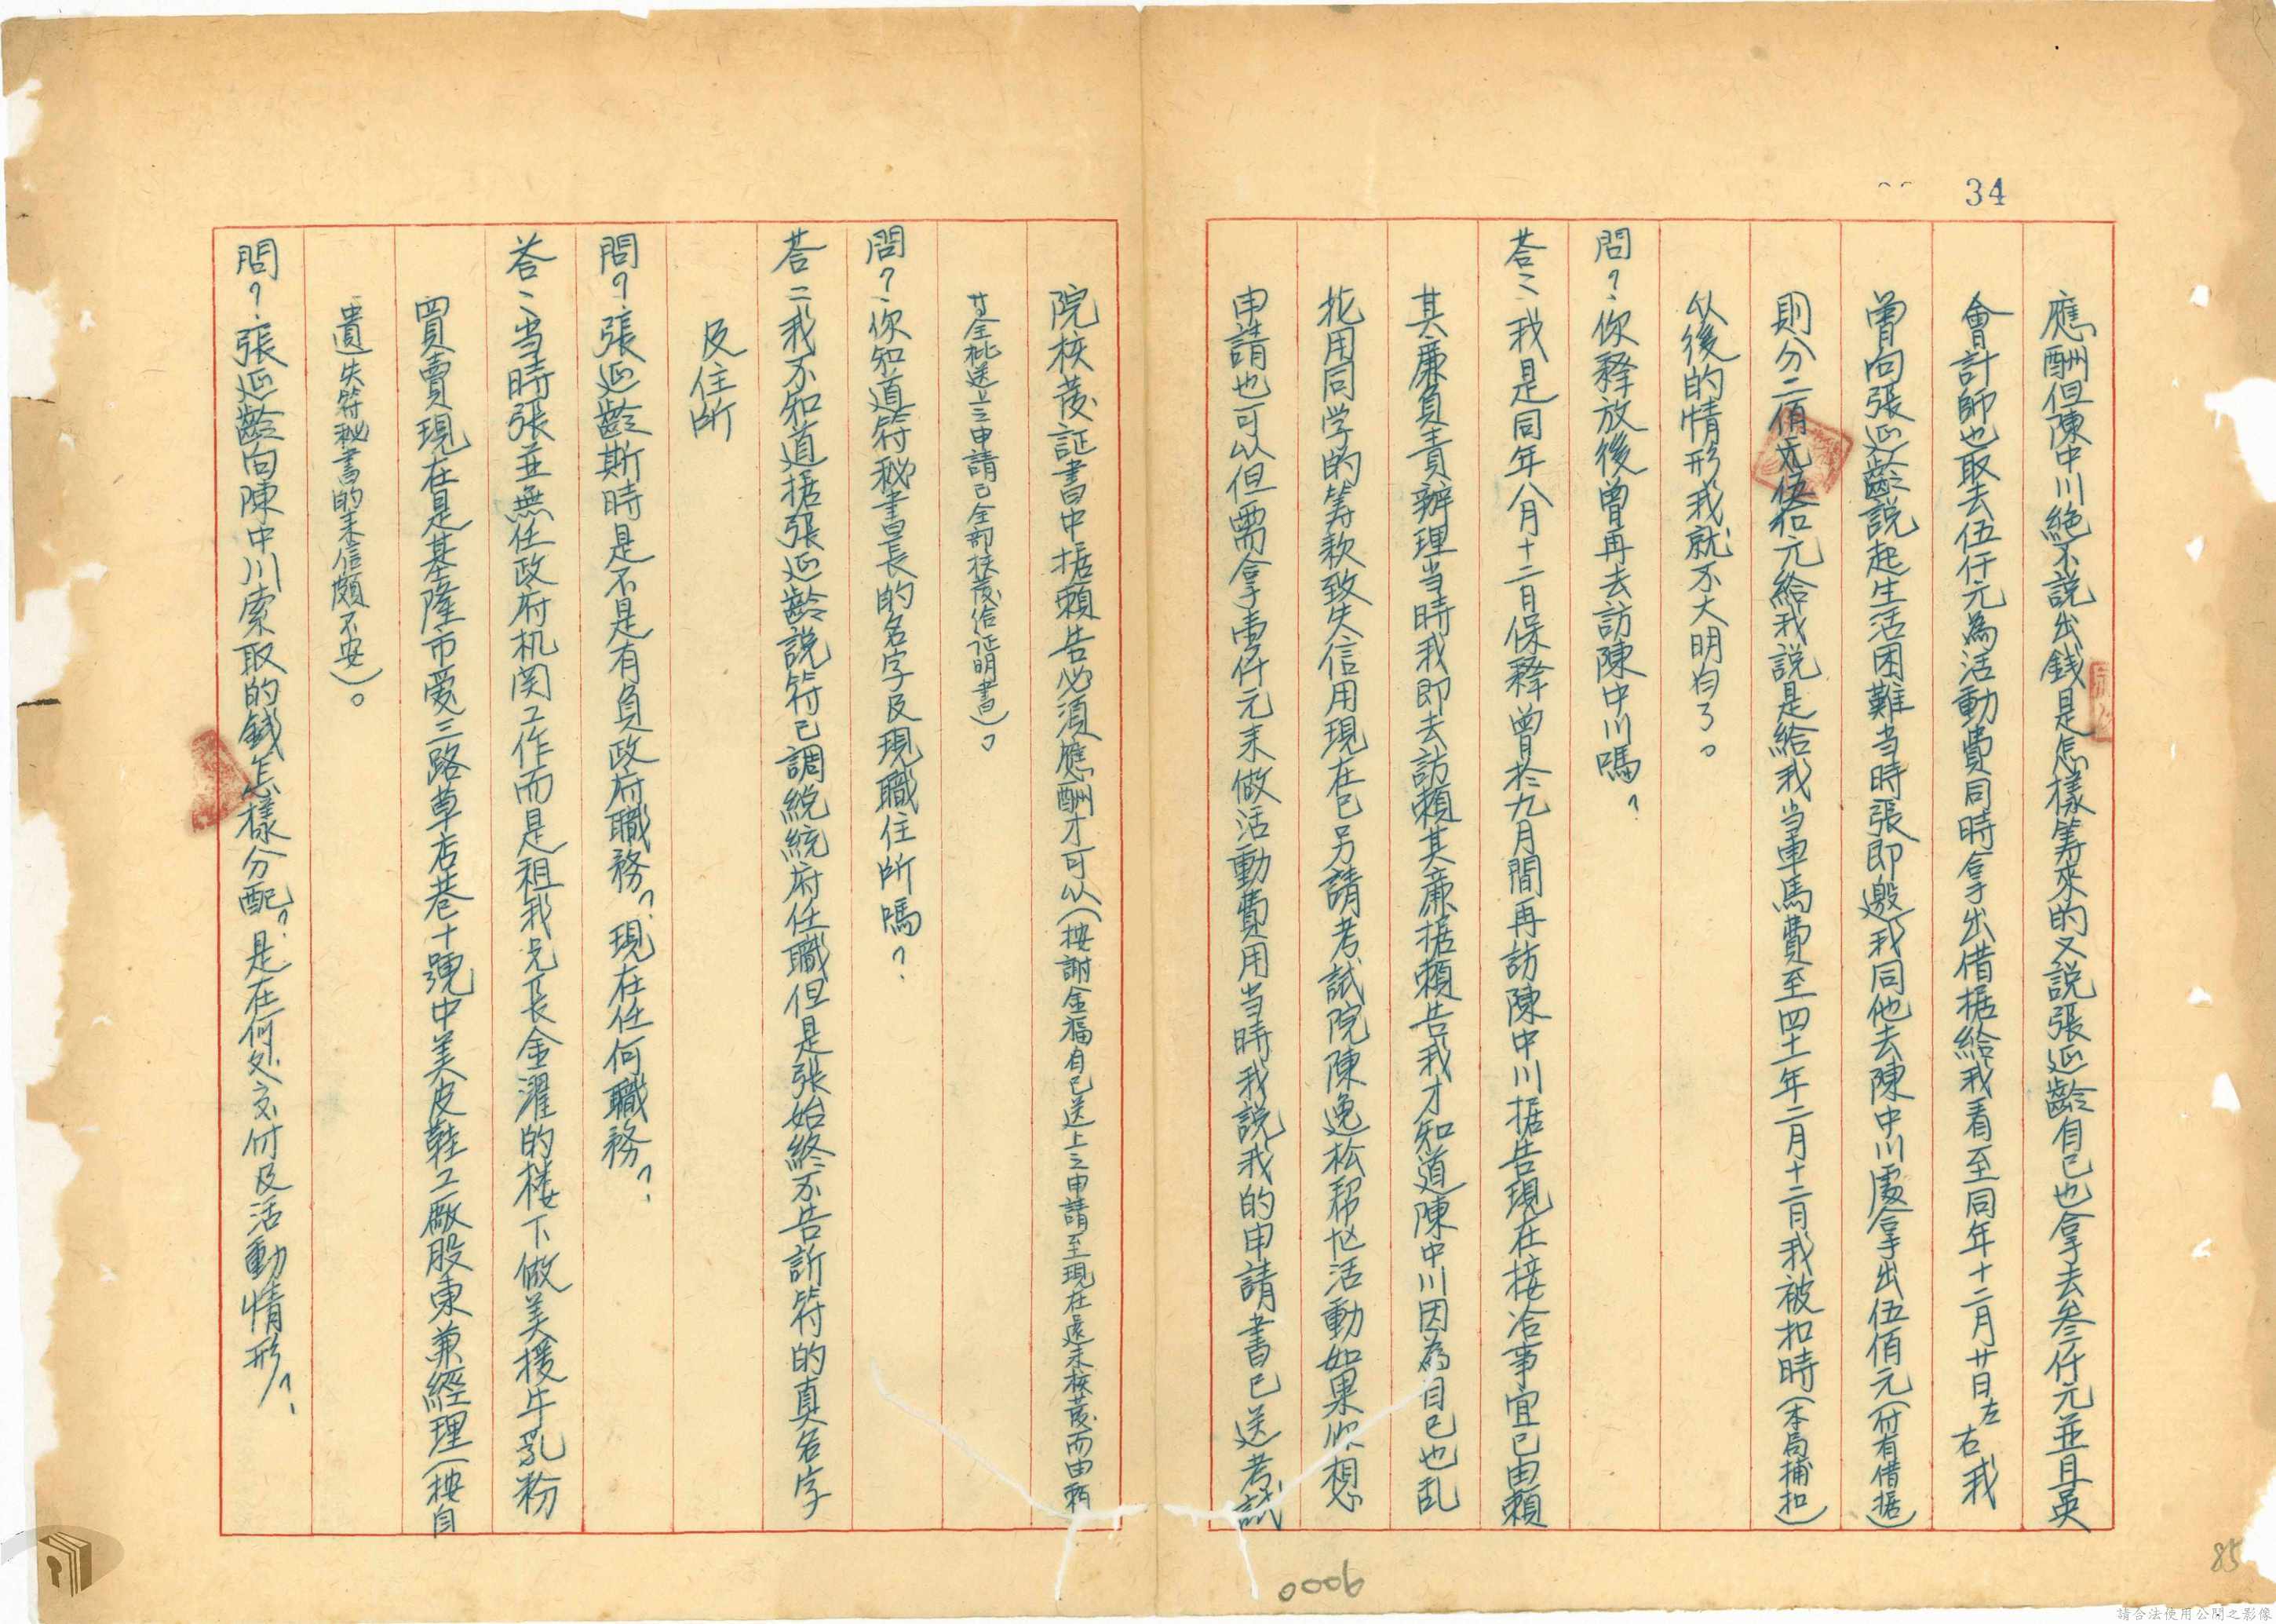 34
應酬但陳中川絕不説出錢是怎樣筹來的又説張延齡自己也拿去叁仟元並且吳
會計師也取去伍仟元為活動費同時拿出借据給我看至同年十二月廿日左右我
曾向張延齡説起生活困難当時張即邀我同他去陳中川處拿出伍佰元(付有借据)
則分二佰元伍拾元給我説是給我当車馬費至四十一年二月十二日我被扣時(本局捕扣)
以後的情形我就不大明白了。
問？你釋放後曾再去訪陳中川嗎？
荅：我是同年八月十二日保釋曾於九月間再訪陳中川据告現在接洽事宜已由賴
其廉負責辦理当時我即去訪賴其廉据賴告我才知道陳中川因為自己也乱
花用同学的筹款致失信用現在已另請考試院陳逸松帮忙活動如果你想
申請也可以但需拿壹仟元来做活動費用当時我説我的申請書已送考試
院核發証書中据賴告必須應酬才可以(按謝金福自己送上之申請至現在還未核發而由賴
其全批送上之申請已全部核發給证明書)。
問？你知道符秘書長的名字及現職住所嗎？
荅：我不知道据張延齡説符已調総統府任職但是張始終不告訴符的真名字
及住所
問？張延齡斯時是不是有負政府職務？現在任何職務？
荅：当時張並無任政府机関工作而是租我兄長金濯的楼下做美援牛乳粉
買賣現在是基隆市愛三路草店巷十號中美皮鞋工廠股東兼經理(按自
遺失符秘書的来信頗不安)。
問？張延齡向陳中川索取的錢怎樣分配？是在何处交付及活動情形？
0006
85
請合法使用公開之影像